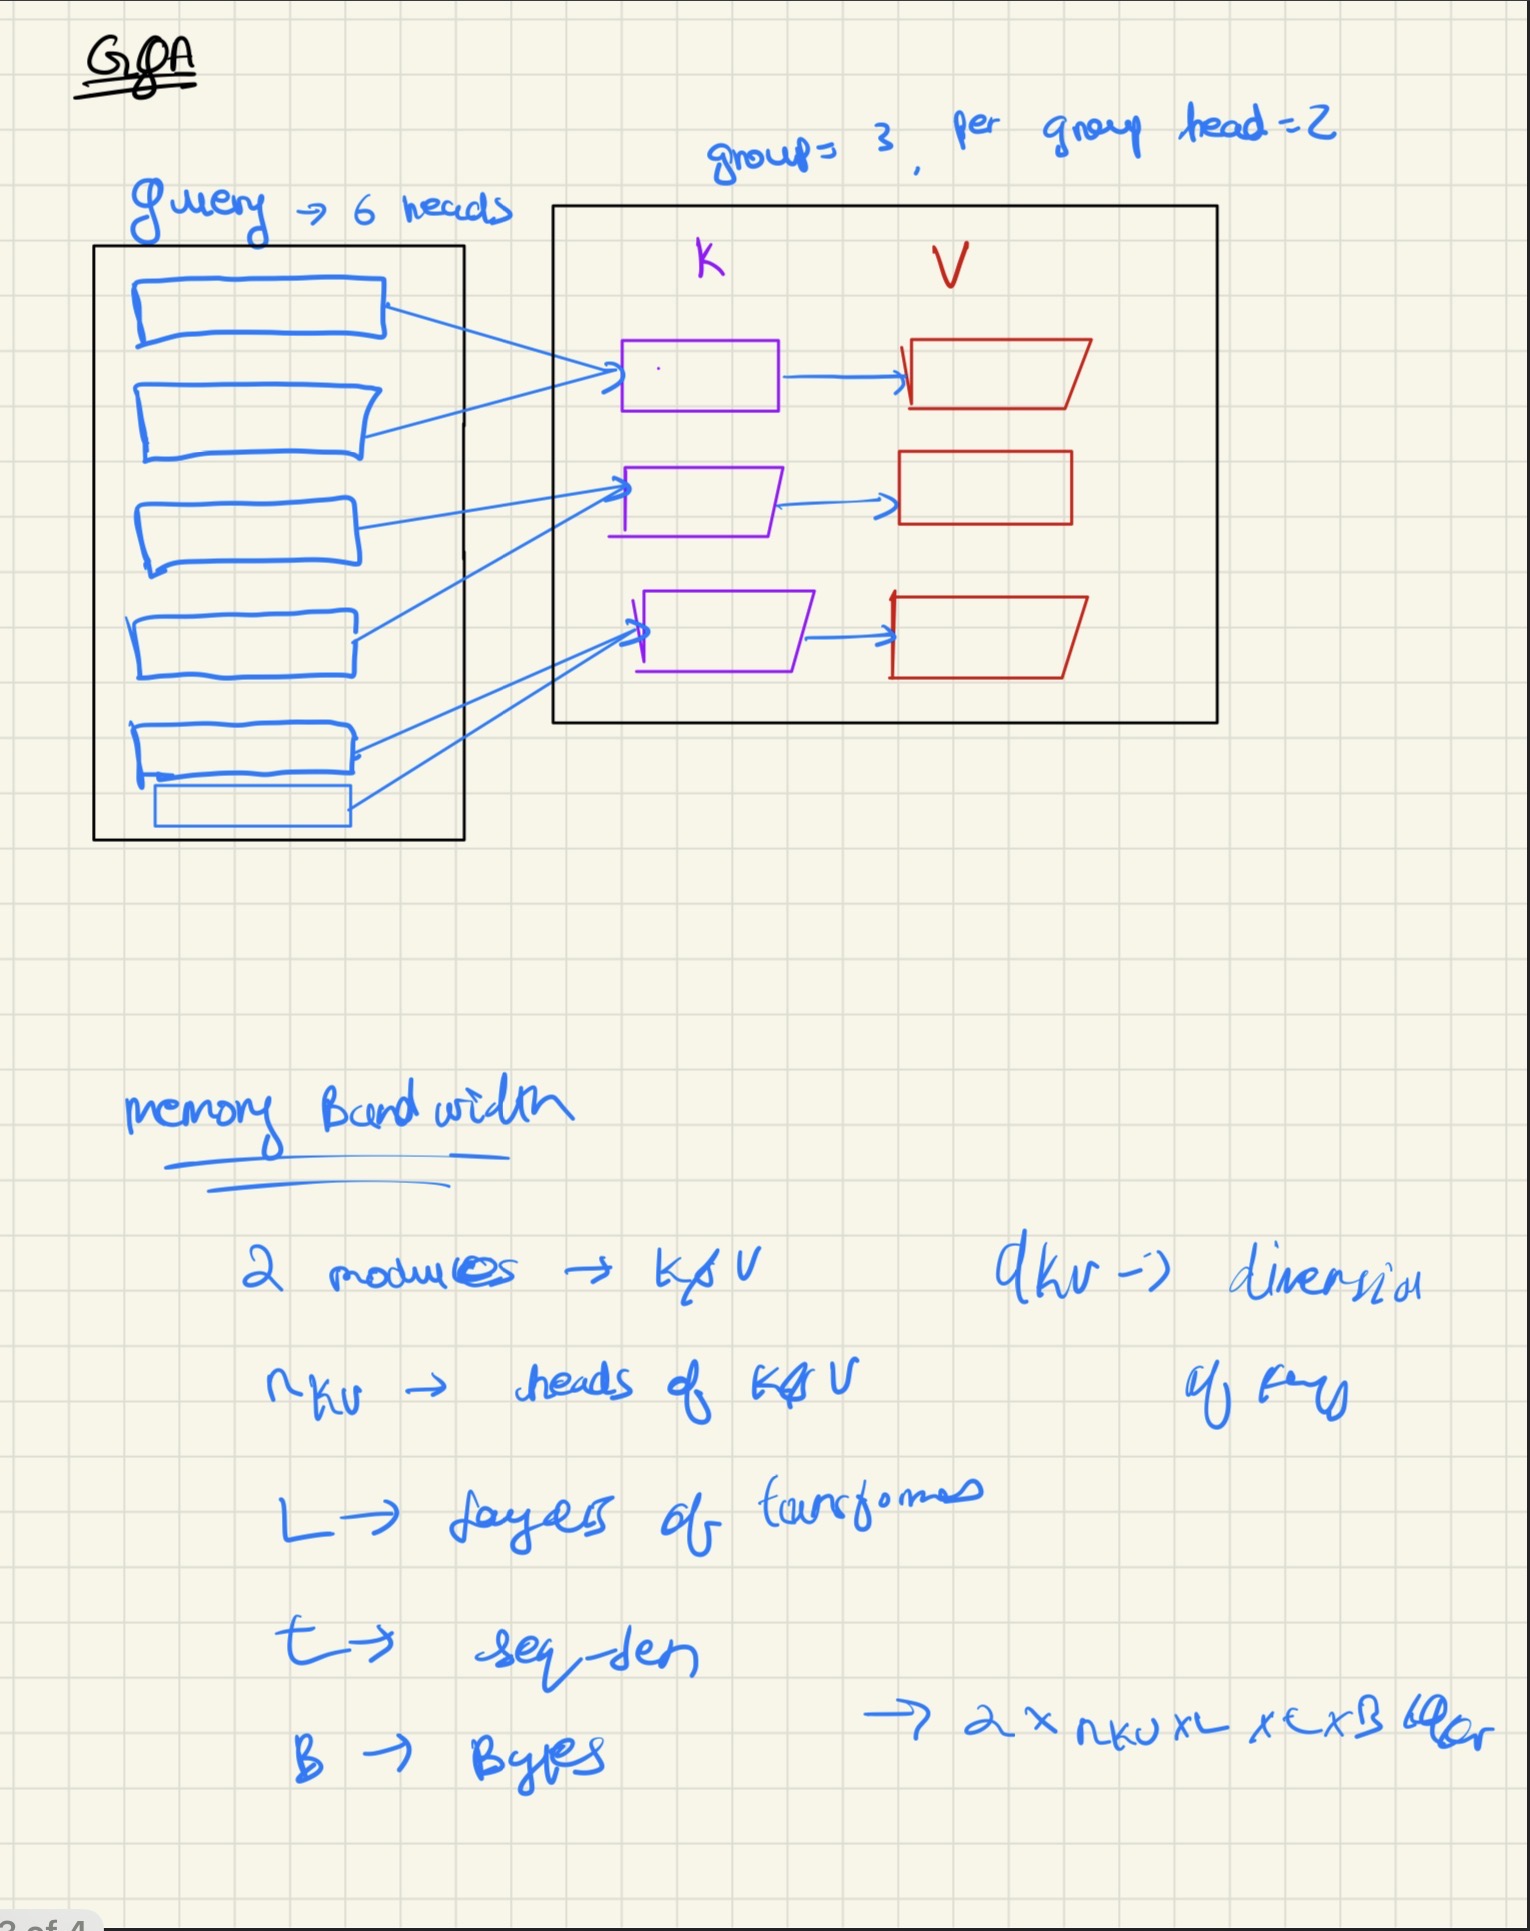 GQA
group = 3, per group head = 2
query → 6 heads
K V
memory Bandwidth
2 modules → K & V
dkv → dimension
of keys
nKV → heads of K & V
L → layers of
t → seq-len
→ 2 × nKV × L × t × B
B → Bytes
3 of 4